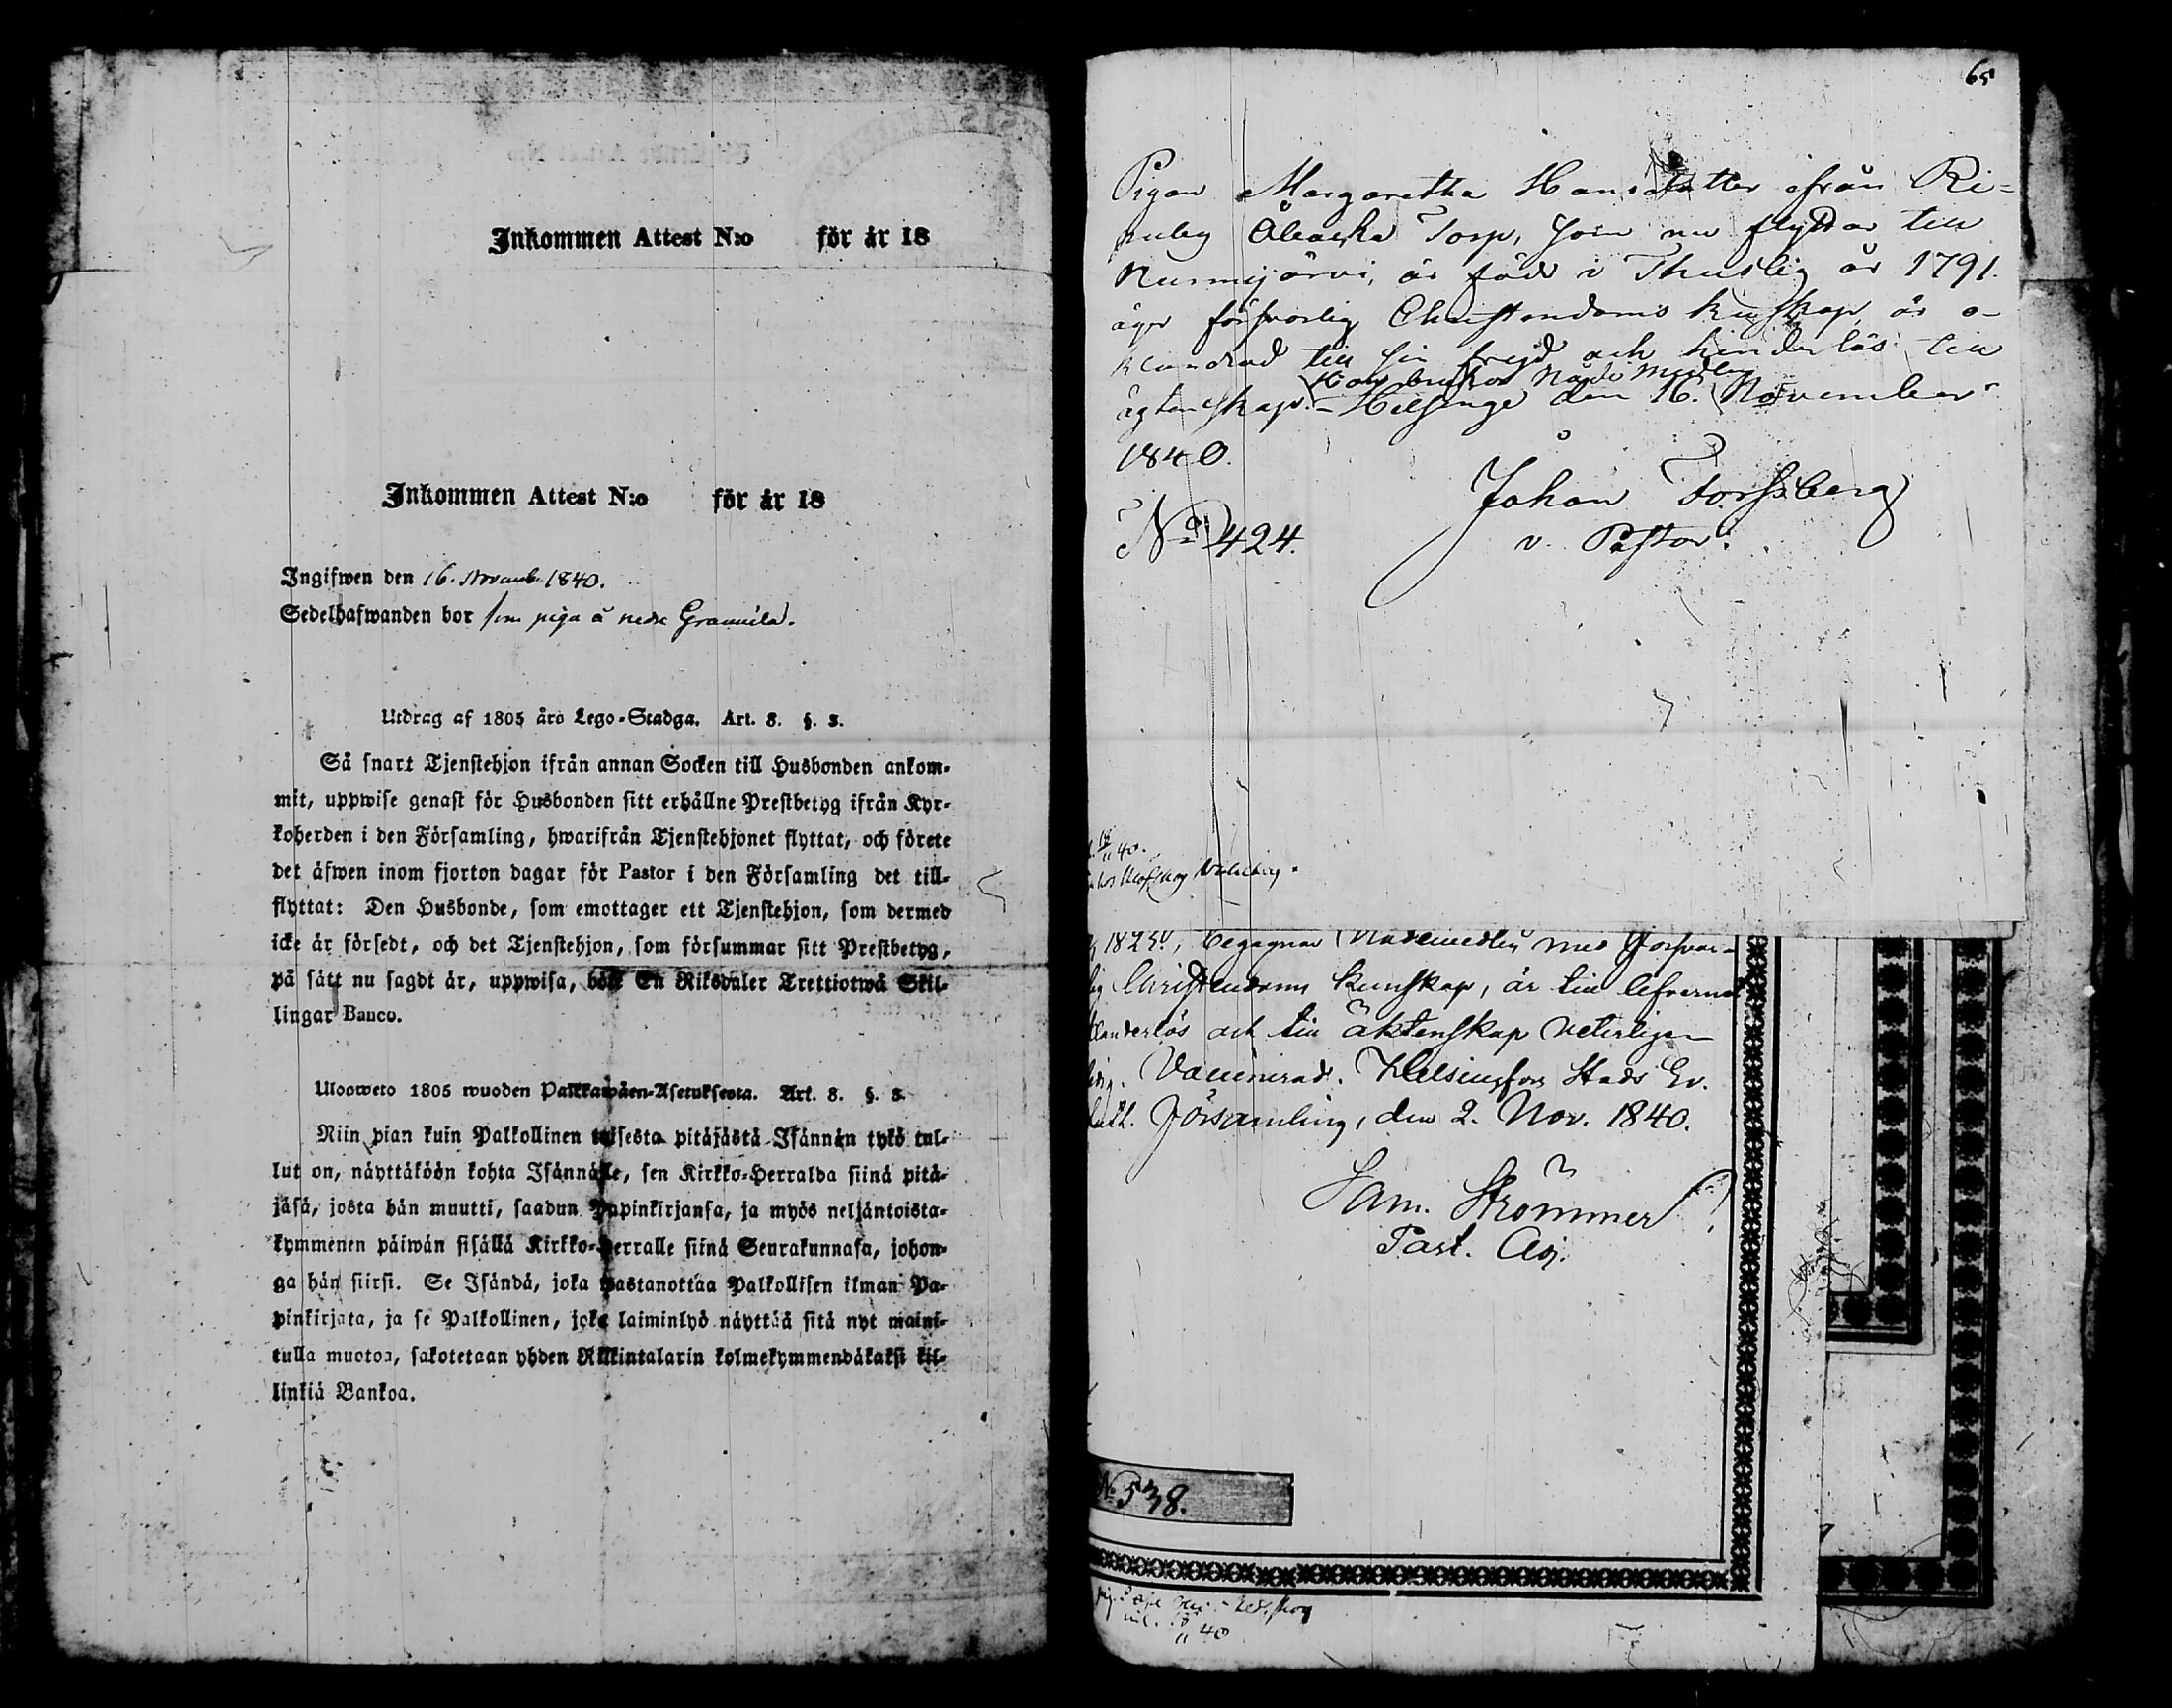 Inkommen Attest N:o för år 18
Inkommen Attest N:o för år 18
Ingifwen den 16. Novemb. 1840.
Sedelhafwanden bor som piga å nedre Gramnila.
Utdrag af 1805 års Lego-Stadga. Art. 8. §. 3.
Så snart Tjenstehjon ifrån annan Socken till Husbonden ankom-
mit, uppwise genast för Husbonden sitt erhållne Prestbetyg ifrån Kyr-
koherden i den Församling, hwarifrån Tjenstehjonet flyttat, och förete
det äfwen inom fjorton dagar för Pastor i den Församling det till-
flyttat: Den Husbonde, som emottager ett Tjenstehjon, som dermed
icke är försedt, och det Tjenstehjon, som försummar sitt Prestbetyg,
på sätt nu sagdt är, uppwisa, böte En Riksdaler Trettiotwå Skil-
lingar Banco.
Ulosweto 1805 wuoden Palkkawäen-Asetuksesta. Art. 8. §. 3.
Niin pian kuin Palkollinen toisesta pitäjästä Isännän tykö tul-
lut on, näyttäköön kohta Isännälle, sen Kirkko-Herralda siinä pitä-
jäsä, josta hän muutti, saadun Papinkirjansa, ja myös neljäntoista-
kymmenen päiwän sisällä Kirkko-Herralle siinä Seurakunnasa, johon-
ga hän siirsi. Se Isändä, joka wastanottaa Palkollisen ilman Pa-
pinkirjata, ja se Palkollinen, joka laiminlyö näyttää sitä nyt maini-
tulla muotoa, sakotetaan yhden Riikintalarin kolmekymmendäkaksi kil-
linkiä Bankoa.
65
Pigan Margaretha Hansdotter ifrån Ri-
Torp, som nu flyttar till
Nurmijärvi, är född i Thusby år 1791.
äger försvarlig Christendoms kunskap, är o-
klandrad till sin frejd och hinderlös till
Hon brukar Nådemedlen
ägtenskap. - Helsinge den 16. November
1840.
Johan Forssberg
v. Pastor.
No 424.
18/11 40.
1825, begagnar Nådemedlen med försvar-
lig Christendoms kunskap, är till lefvernet
klanderlös och till äktenskap veterligen
ledig. Vaccinerad. Helsingfors Stads Ev.
Luth. Församling, den 2. Nov. 1840.
Sam. Strömmer
Past. Adj.
No 538.
11 40